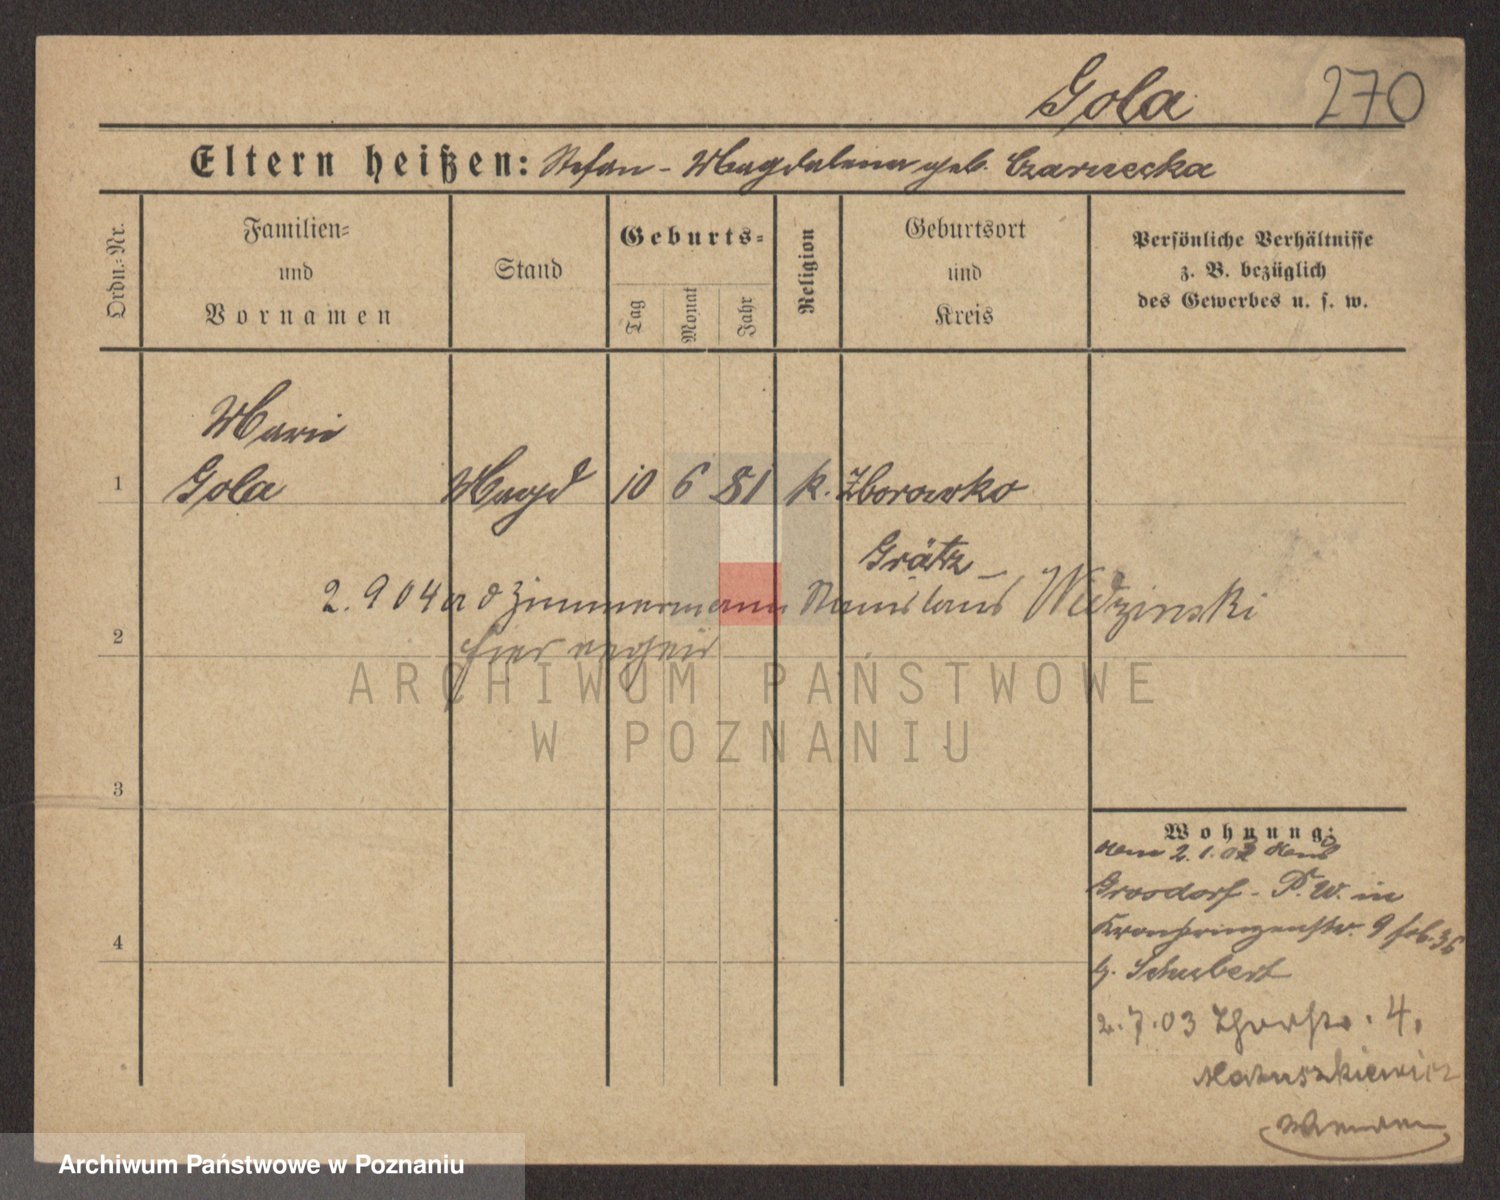 Gola 270
Eltern heißen: Stefan - Magdalena geb. Czarnecka
Ordn.-Nr.
Familien-
und
Vornamen
Stand
Geburts-
Tag
Monat
Jahr
Religion
Geburtsort
und
Kreis
Persönliche Verhältnisse
z. B. bezüglich
des Gewerbes u. s. w.
Marie
1 Gola Magd 10 6 81 k. Zborowko
Grätz
2.904 Zimmermann Stanislaus Widzinski
2 hier
ARCHIWUM PAŃSTWOWE
W POZNANIU
3
Wohnung:
2.1.02
Grosdorf - P. W. in
4 Kronprinzenstr. 9
b. Schubert
2.7.03 4.
Matuszkiewicz
Archiwum Państwowe w Poznaniu